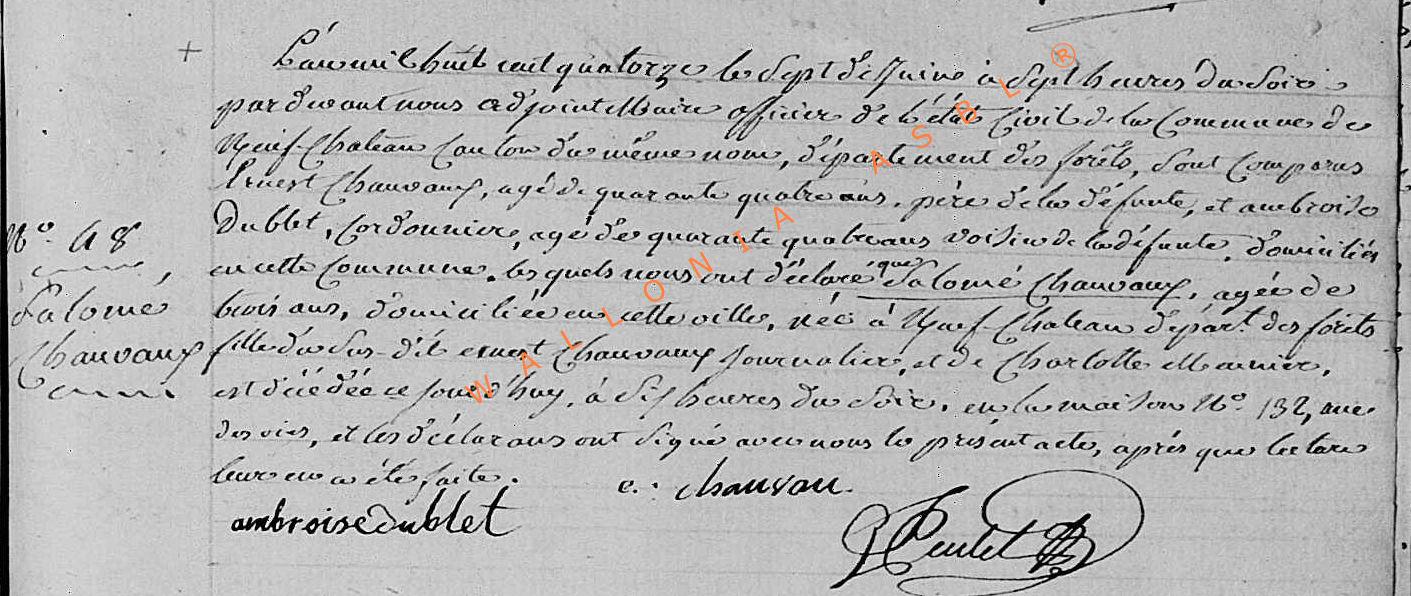 +
L'an mil huit cent quatorze le Sept de Juin à Sept heures du Soir
par devant nous adjoint Maire officier de l'état Civil de la Commune de
Neuf-Chateau Canton du même nom, département des forêts, Sont Comparus
Ernest Chauvaux, agé de quarante quatre ans, père de la défunte, et ambroise
Dublet, Cordonnier, agé de quarante quatre ans voisin de la défunte, domiciliés
en cette Commune. les quels nous ont déclaré que Salomé Chauvaux, agée de
trois ans, domiciliée en cette ville, née à Neuf-Chateau départ.t des forêts
fille du Sus-dit ernest Chauvaux Journalier, et de Charlotte Meunier,
est décédée ce jour d'huy, à Six heures du Soir, en la maison N.o 132, rue
des oies, et les déclarans ont Signé avec nous le présent acte, après que lecture
leur en a été faite.
N.o 48
Salomé
Chauvaux
e. : chauvau.
ambroise dublet
WALLONIA ASBL ®